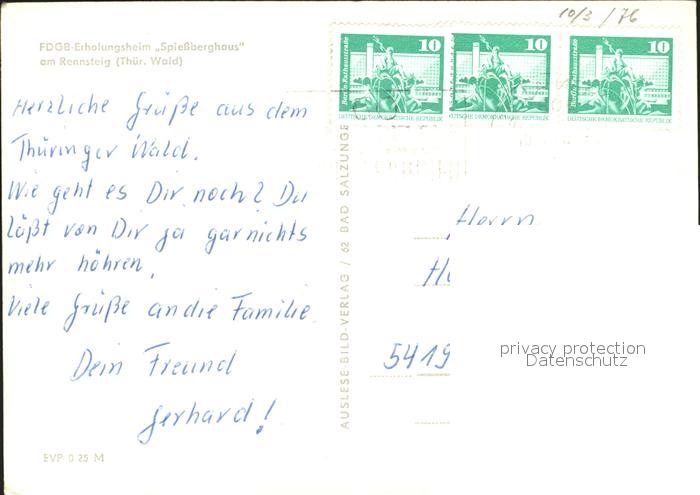 10/3 / 76
FDGB-Erholungsheim „Spießberghaus"
am Rennsteig (Thür. Wald)
10
Berlin, Rathausstraße
DEUTSCHE DEMOKRATISCHE REPUBLIK
10
DEUTSCHE DEMOKRATISCHE REPUBLIK
10
Berlin, Rathausstraße
DEUTSCHE DEMOKRATISCHE REPUBLIK
Herzliche Grüße aus dem
Thüringer Wald.
Wie geht es Dir noch? Du
läßt von Dir ja garnichts
mehr höhren.
Viele Grüße an die Familie.
Dein Freund
Gerhard!
AUSLESE BILD-VERLAG / 62 BAD SALZUNGE
Herrn
5419
privacy protection
Datenschutz
EVP 0 25 M